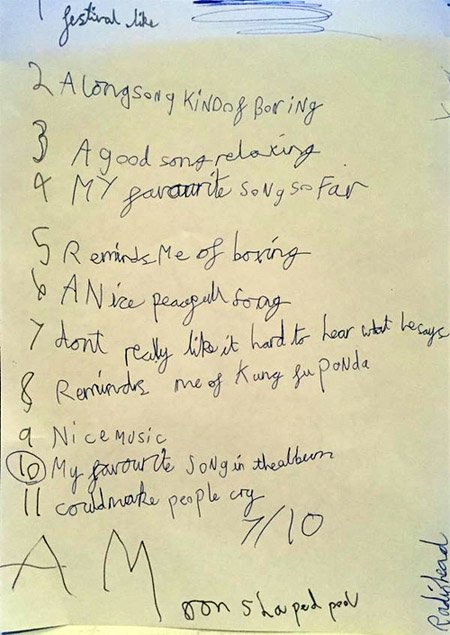 1 festival like
2 A long song KINDof Boring
3 A good song relaxing
4 MY favourite song so Far
5 Reminds Me of boxing
6 A Nice peacgull song
7 dont really like it hard to hear what he says
8 Reminds me of Kung fu Ponda
9 Nice music
10 My favourite song in the album
11 could make people cry
7/10
A Moon shaped pool
Radiohead